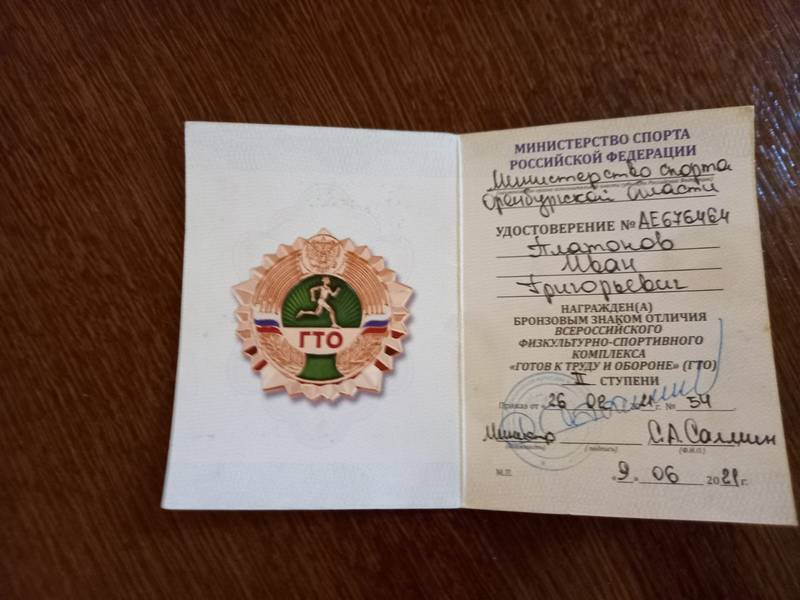 ГТО
МИНИСТЕРСТВО СПОРТА
РОССИЙСКОЙ ФЕДЕРАЦИИ
Министерство спорта
Оренбургской области
УДОСТОВЕРЕНИЕ № АЕ676464
Платонов
Иван
Григорьевич
НАГРАЖДЕН(А)
БРОНЗОВЫМ ЗНАКОМ ОТЛИЧИЯ
ВСЕРОССИЙСКОГО
ФИЗКУЛЬТУРНО-СПОРТИВНОГО
КОМПЛЕКСА
«ГОТОВ К ТРУДУ И ОБОРОНЕ» (ГТО)
II СТУПЕНИ
Приказ от «26 2021 г. № 54
Министр С.А.Салмин
(должность) (подпись) (Ф.И.О.)
М.П. «9» 06 2021 г.